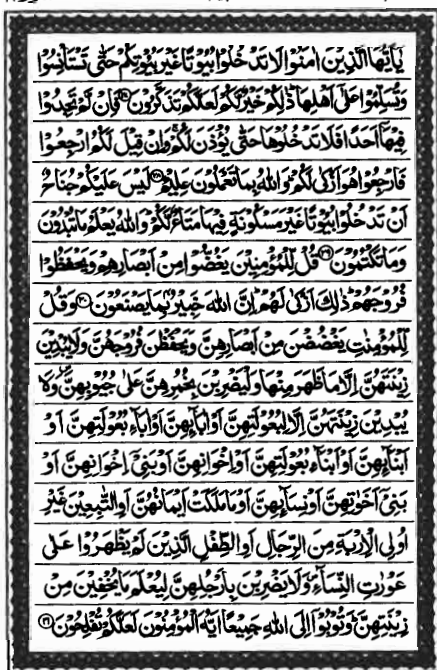 يٰٓاَيُّهَا الَّذِيۡنَ اٰمَنُوۡا لَا تَدۡخُلُوۡا بُيُوۡتًا غَيۡرَ بُيُوۡتِكُمۡ حَتّٰى تَسۡتَاۡنِسُوۡا
وَتُسَلِّمُوۡا عَلٰٓى اَهۡلِهَا ؕ ذٰلِكُمۡ خَيۡرٌ لَّكُمۡ لَعَلَّكُمۡ تَذَكَّرُوۡنَ ۲۷ فَاِنۡ لَّمۡ تَجِدُوۡا
فِيۡهَاۤ اَحَدًا فَلَا تَدۡخُلُوۡهَا حَتّٰى يُؤۡذَنَ لَكُمۡ ۚ وَاِنۡ قِيۡلَ لَكُمُ ارۡجِعُوۡا
فَارۡجِعُوۡا هُوَ اَزۡكٰى لَكُمۡ ؕ وَاللّٰهُ بِمَا تَعۡمَلُوۡنَ عَلِيۡمٌ ۲۸ لَيۡسَ عَلَيۡكُمۡ جُنَاحٌ
اَنۡ تَدۡخُلُوۡا بُيُوۡتًا غَيۡرَ مَسۡكُوۡنَةٍ فِيۡهَا مَتَاعٌ لَّكُمۡ ؕ وَاللّٰهُ يَعۡلَمُ مَا تُبۡدُوۡنَ
وَمَا تَكۡتُمُوۡنَ ۲۹ قُلْ لِّلۡمُؤۡمِنِيۡنَ يَغُضُّوۡا مِنۡ اَبۡصَارِهِمۡ وَيَحۡفَظُوۡا
فُرُوۡجَهُمۡ ؕ ذٰلِكَ اَزۡكٰى لَهُمۡ ؕ اِنَّ اللّٰهَ خَبِيۡرٌۢ بِمَا يَصۡنَعُوۡنَ ۳۰ وَقُلْ
لِّلۡمُؤۡمِنٰتِ يَغۡضُضۡنَ مِنۡ اَبۡصَارِهِنَّ وَيَحۡفَظۡنَ فُرُوۡجَهُنَّ وَلَا يُبۡدِيۡنَ
زِيۡنَتَهُنَّ اِلَّا مَا ظَهَرَ مِنۡهَا وَلۡيَضۡرِبۡنَ بِخُمُرِهِنَّ عَلٰى جُيُوۡبِهِنَّ ۪ وَلَا
يُبۡدِيۡنَ زِيۡنَتَهُنَّ اِلَّا لِبُعُوۡلَتِهِنَّ اَوۡ اٰبَآٮِٕهِنَّ اَوۡ اٰبَآءِ بُعُوۡلَتِهِنَّ اَوۡ
اَبۡنَآٮِٕهِنَّ اَوۡ اَبۡنَآءِ بُعُوۡلَتِهِنَّ اَوۡ اِخۡوَانِهِنَّ اَوۡ بَنِىۡۤ اِخۡوَانِهِنَّ اَوۡ
بَنِىۡۤ اَخَوٰتِهِنَّ اَوۡ نِسَآٮِٕهِنَّ اَوۡ مَا مَلَـكَتۡ اَيۡمَانُهُنَّ اَوِ التّٰبِعِيۡنَ غَيۡرِ
اُولِى الۡاِرۡبَةِ مِنَ الرِّجَالِ اَوِ الطِّفۡلِ الَّذِيۡنَ لَمۡ يَظۡهَرُوۡا عَلٰى
عَوۡرٰتِ النِّسَآءِ ۪ وَلَا يَضۡرِبۡنَ بِاَرۡجُلِهِنَّ لِيُـعۡلَمَ مَا يُخۡفِيۡنَ مِنۡ
زِيۡنَتِهِنَّ ؕ وَتُوۡبُوۡۤا اِلَى اللّٰهِ جَمِيۡعًا اَيُّهَ الۡمُؤۡمِنُوۡنَ لَعَلَّكُمۡ تُفۡلِحُوۡنَ ۳۱